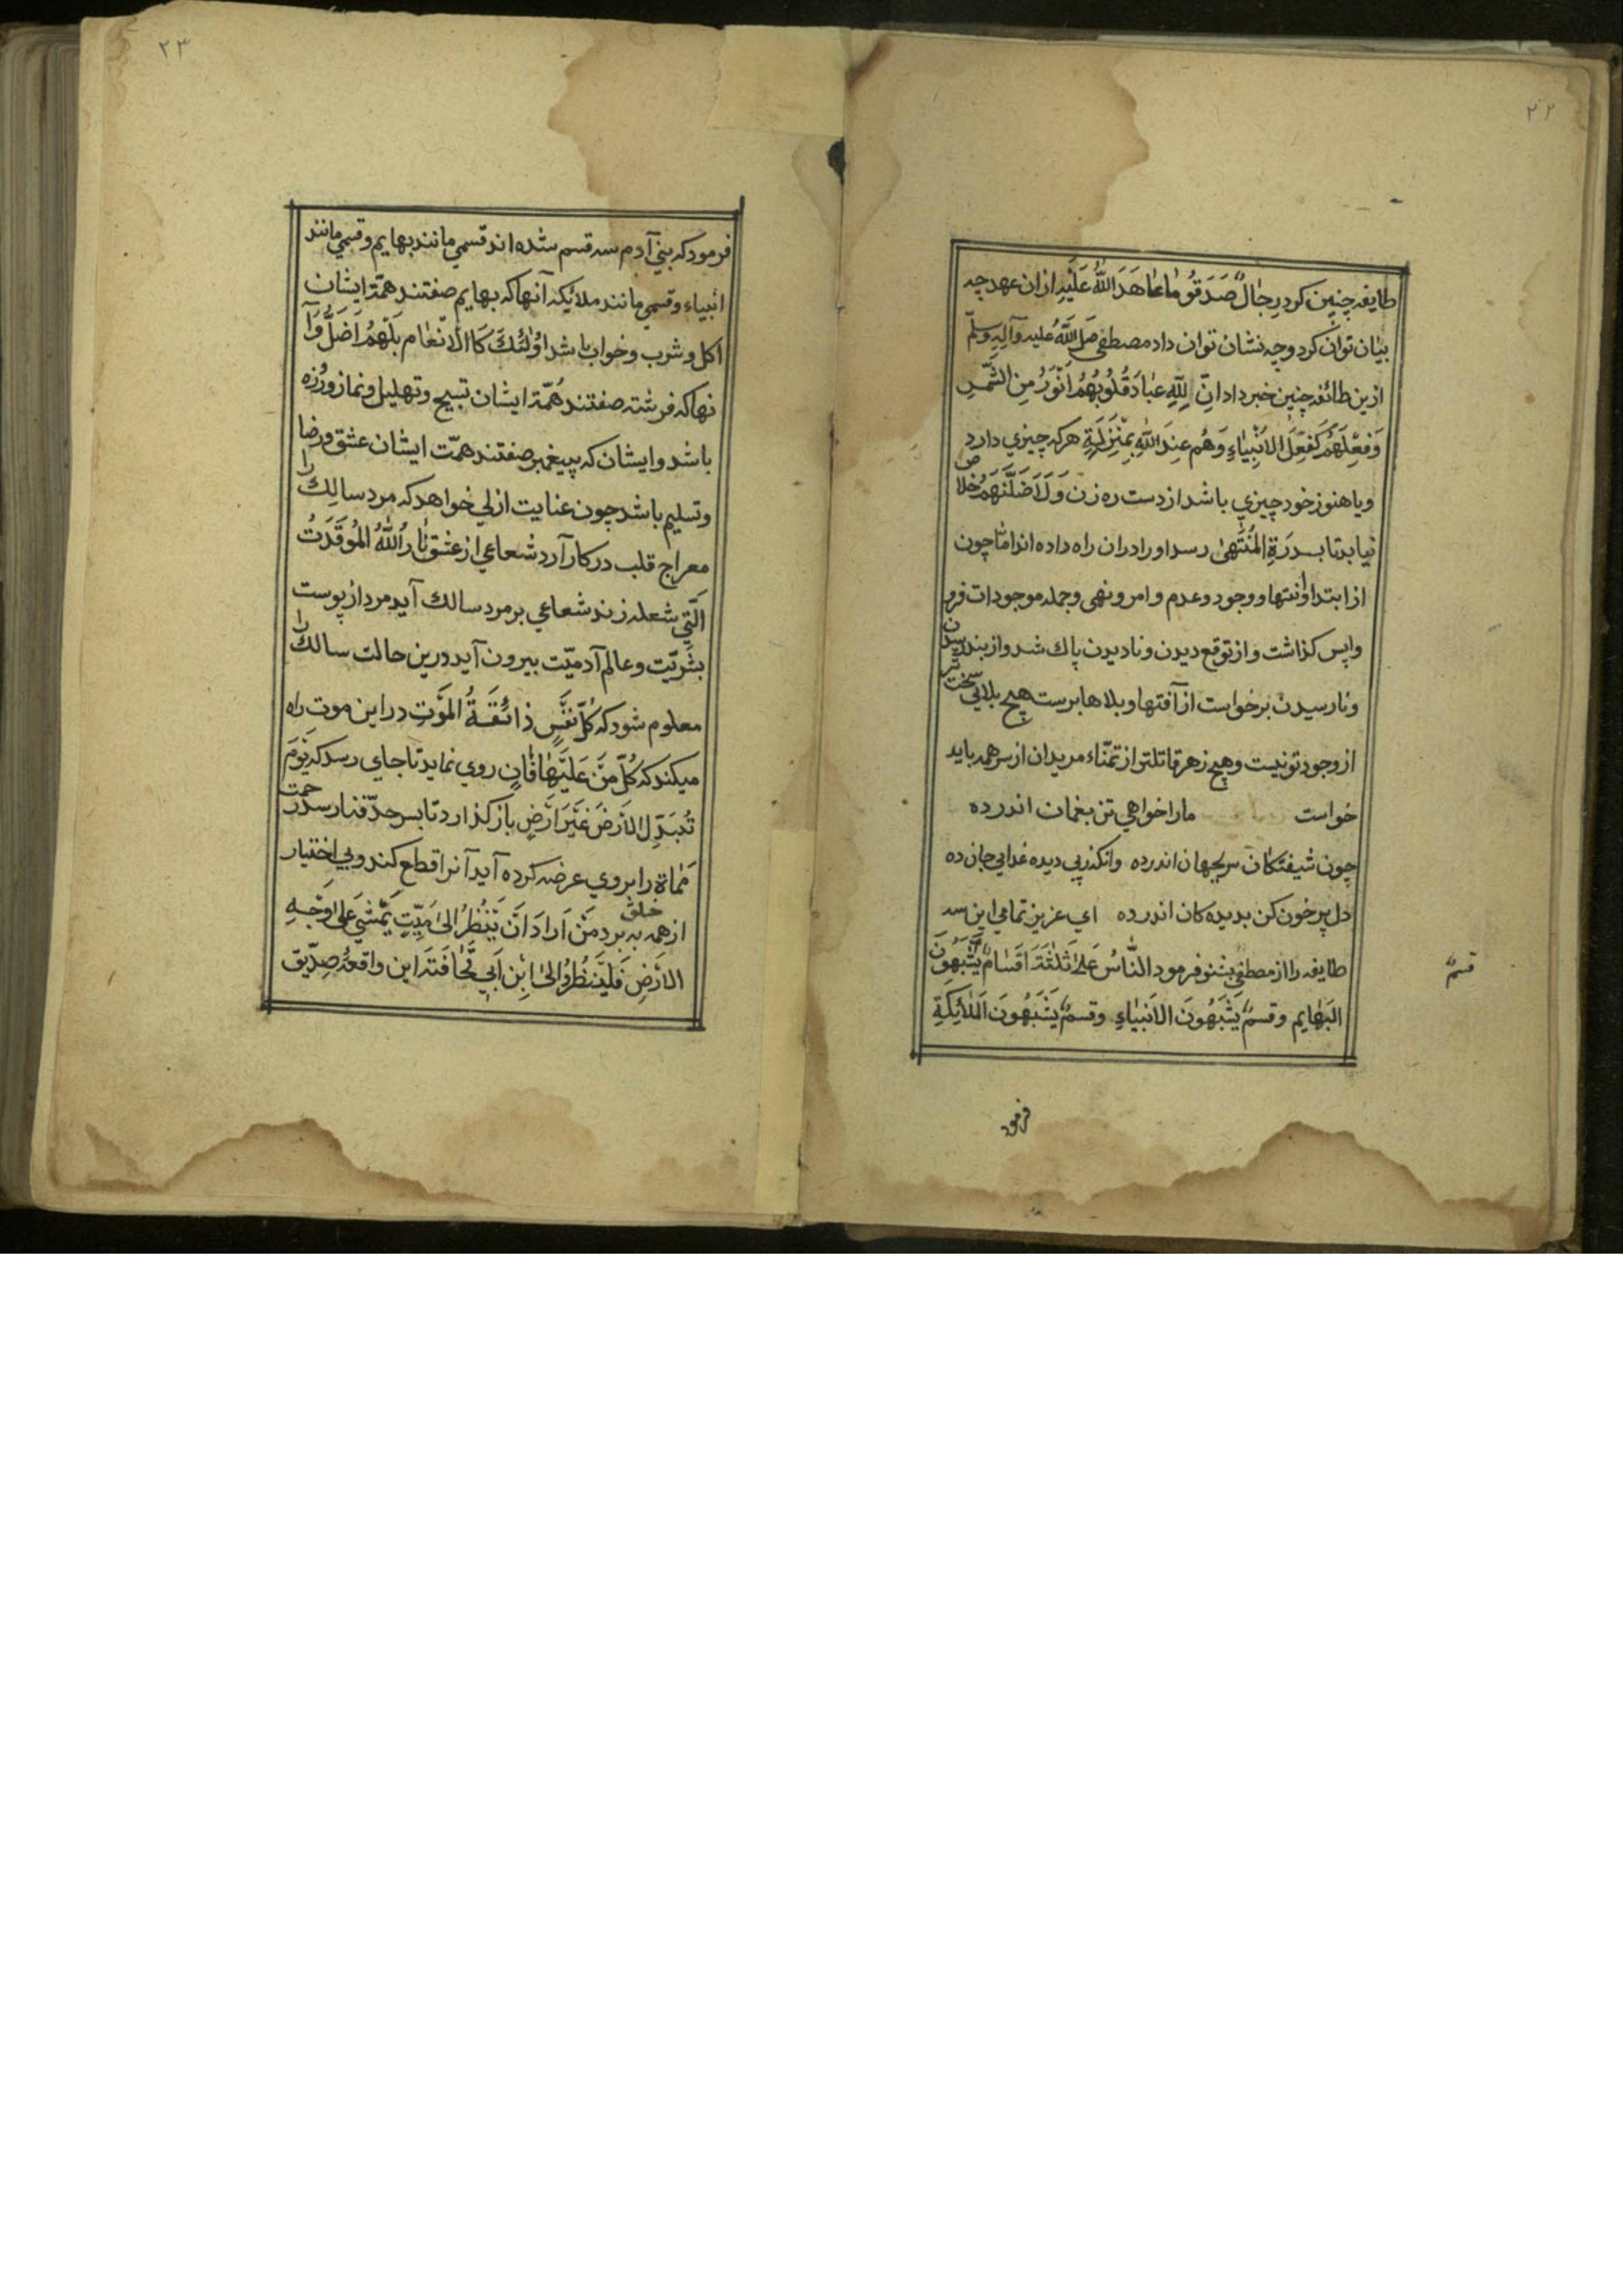 ۲۲
طایفه چنین کرد رِجٰالٌ صَدَقُو مٰا عٰاهَدَ اللّٰهُ عَلَیْهِ ازان عهد چه
بیان توان کرد و چه نشان توان داد مصطفی صَلَی اللّٰهُ علیه وَآلِهِ وسلّم
ازین طائفه چنین خبر داد انّ لِلّٰهِ عبٰادَ قُلُوبُهُمْ اَنْوَرُ مِنَ الشَّمْسِ
وَفِعْلَهُمْ کَفِعْلَ الاَنْبِیٰاءِ وَهُم عِنْدَ اللّٰهِ بِمَنْزِلَةٍ هرکه چیزي دارد
ویا هنوز خود چیزي باشد از دست ره زن وَلَاَضَلَّنَهُمْ خلاص
نیابد تا بسدرَةِ المُنْتَهیٰ رسد او را دران راه داده اند امّا چون
از ابتدا و انتها و وجود و عدم و امر و نهی و جمله موجودات فرو
واپس کذاشت و از توقع دیدن و نادیدن پاك شد و از بند رسیدن
و نارسیدن برخواست از آفتها و بلاها برست هیچ بلائي سخت تر
از وجود تو نیست و هیچ زهر قاتلتر از تمنّاء مریدان از سر همه باید
خواست ما را خواهي تن بغمان اندرده
چون شیفتکان سر بجهان اندرده وانکذر پي دیده غدایي جان ده
دل پر خون کن بدیده کان اندرده اي عزیز تمامي این سه
طایفه را از مصطفی بشنو فرمود النّٰاسُ عَلیٰ ثَلٰثَةَ اَقسٰام یَشْبَهُونَ
قسمٌ
البَهٰایم وقسمٌ یَشْبَهُونَ الاَنبیٰاءِ وقسمٌ یَشْبَهُونَ المَلٰائِکَةِ
فرمود
۲۳
فرمود که بني آدم سه قسم شده اند قسمي مانند بهایم و قسمي مانند
انبیاء و قسمي مانند ملائکه آنها که بهایم صفتند همّة ایشان
اکل و شرب و خواب باشد اُولٰئكَ کَا الاَنْعٰام بَلْهُمْ اَضَلُّ وَآ
نها که فرشته صفتند هُمّة ایشان تسبیح و تهلیل و نماز و روزه
باشد و ایشان که پیغمبر صفتند همّت ایشان عشق و رضا
و تسلیم باشد چون عنایت ازلي خواهد که مرد سالِك را
معراج قلب در کار آرد شعاعي از عشق نٰارُ اللّٰهُ المُوقَدَتُ
اَلَّتي شعله زند شعاعي بر مرد سالك آید مرد از پوست
بشریّت و عالم آدمیّت بیرون آید درین حالت سالك را
معلوم شود که کُلَّ نَفْسٍ ذائقَةُ المَوْتِ در این موت راه
میکند که کُلَّ مَنْ عَلَیْهٰا فٰانٍ روي نماید تا جاي رسد که یَوْمَ
تُبَدّلِ الاَرَضَ غَیْرَ اَرَضٍ باز کذارد تا بسر حدّ فنا رسد زحمت
مَمٰاة را بروي عرضه کرده آید آنرا قطع کند و بي اختیار
خلق
از همه به برد مَنْ اَرٰادَ اَنْ یَنْظُرُ الیٰ مَیِّتٍ یَمْشَي عَلیٰ وَجْهِ
الاَرَضِ فَلْیَنْظُرُوا الیٰ اِبْنِ اَبي قُحٰافَتَه این واقعهُ صِدّیق